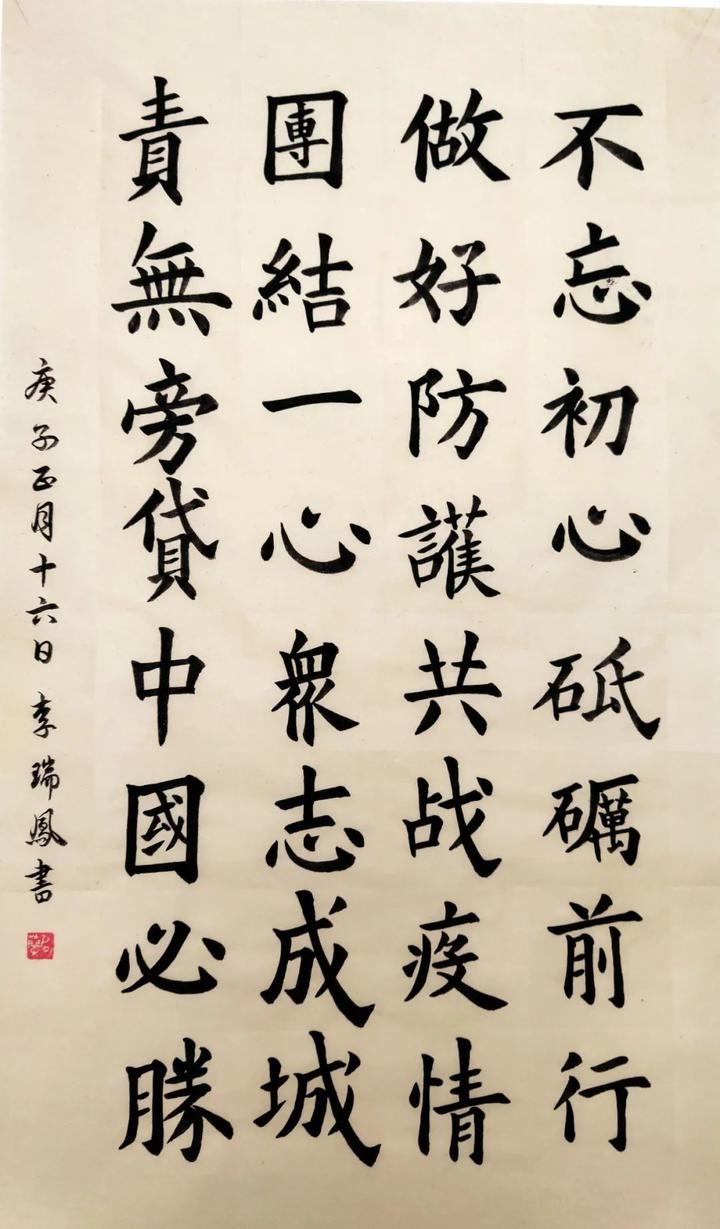 不忘初心砥礪前行
做好防護共战疫情
團結一心衆志成城
責無旁貸中國必勝
庚子正月十六日 李瑞鳳書